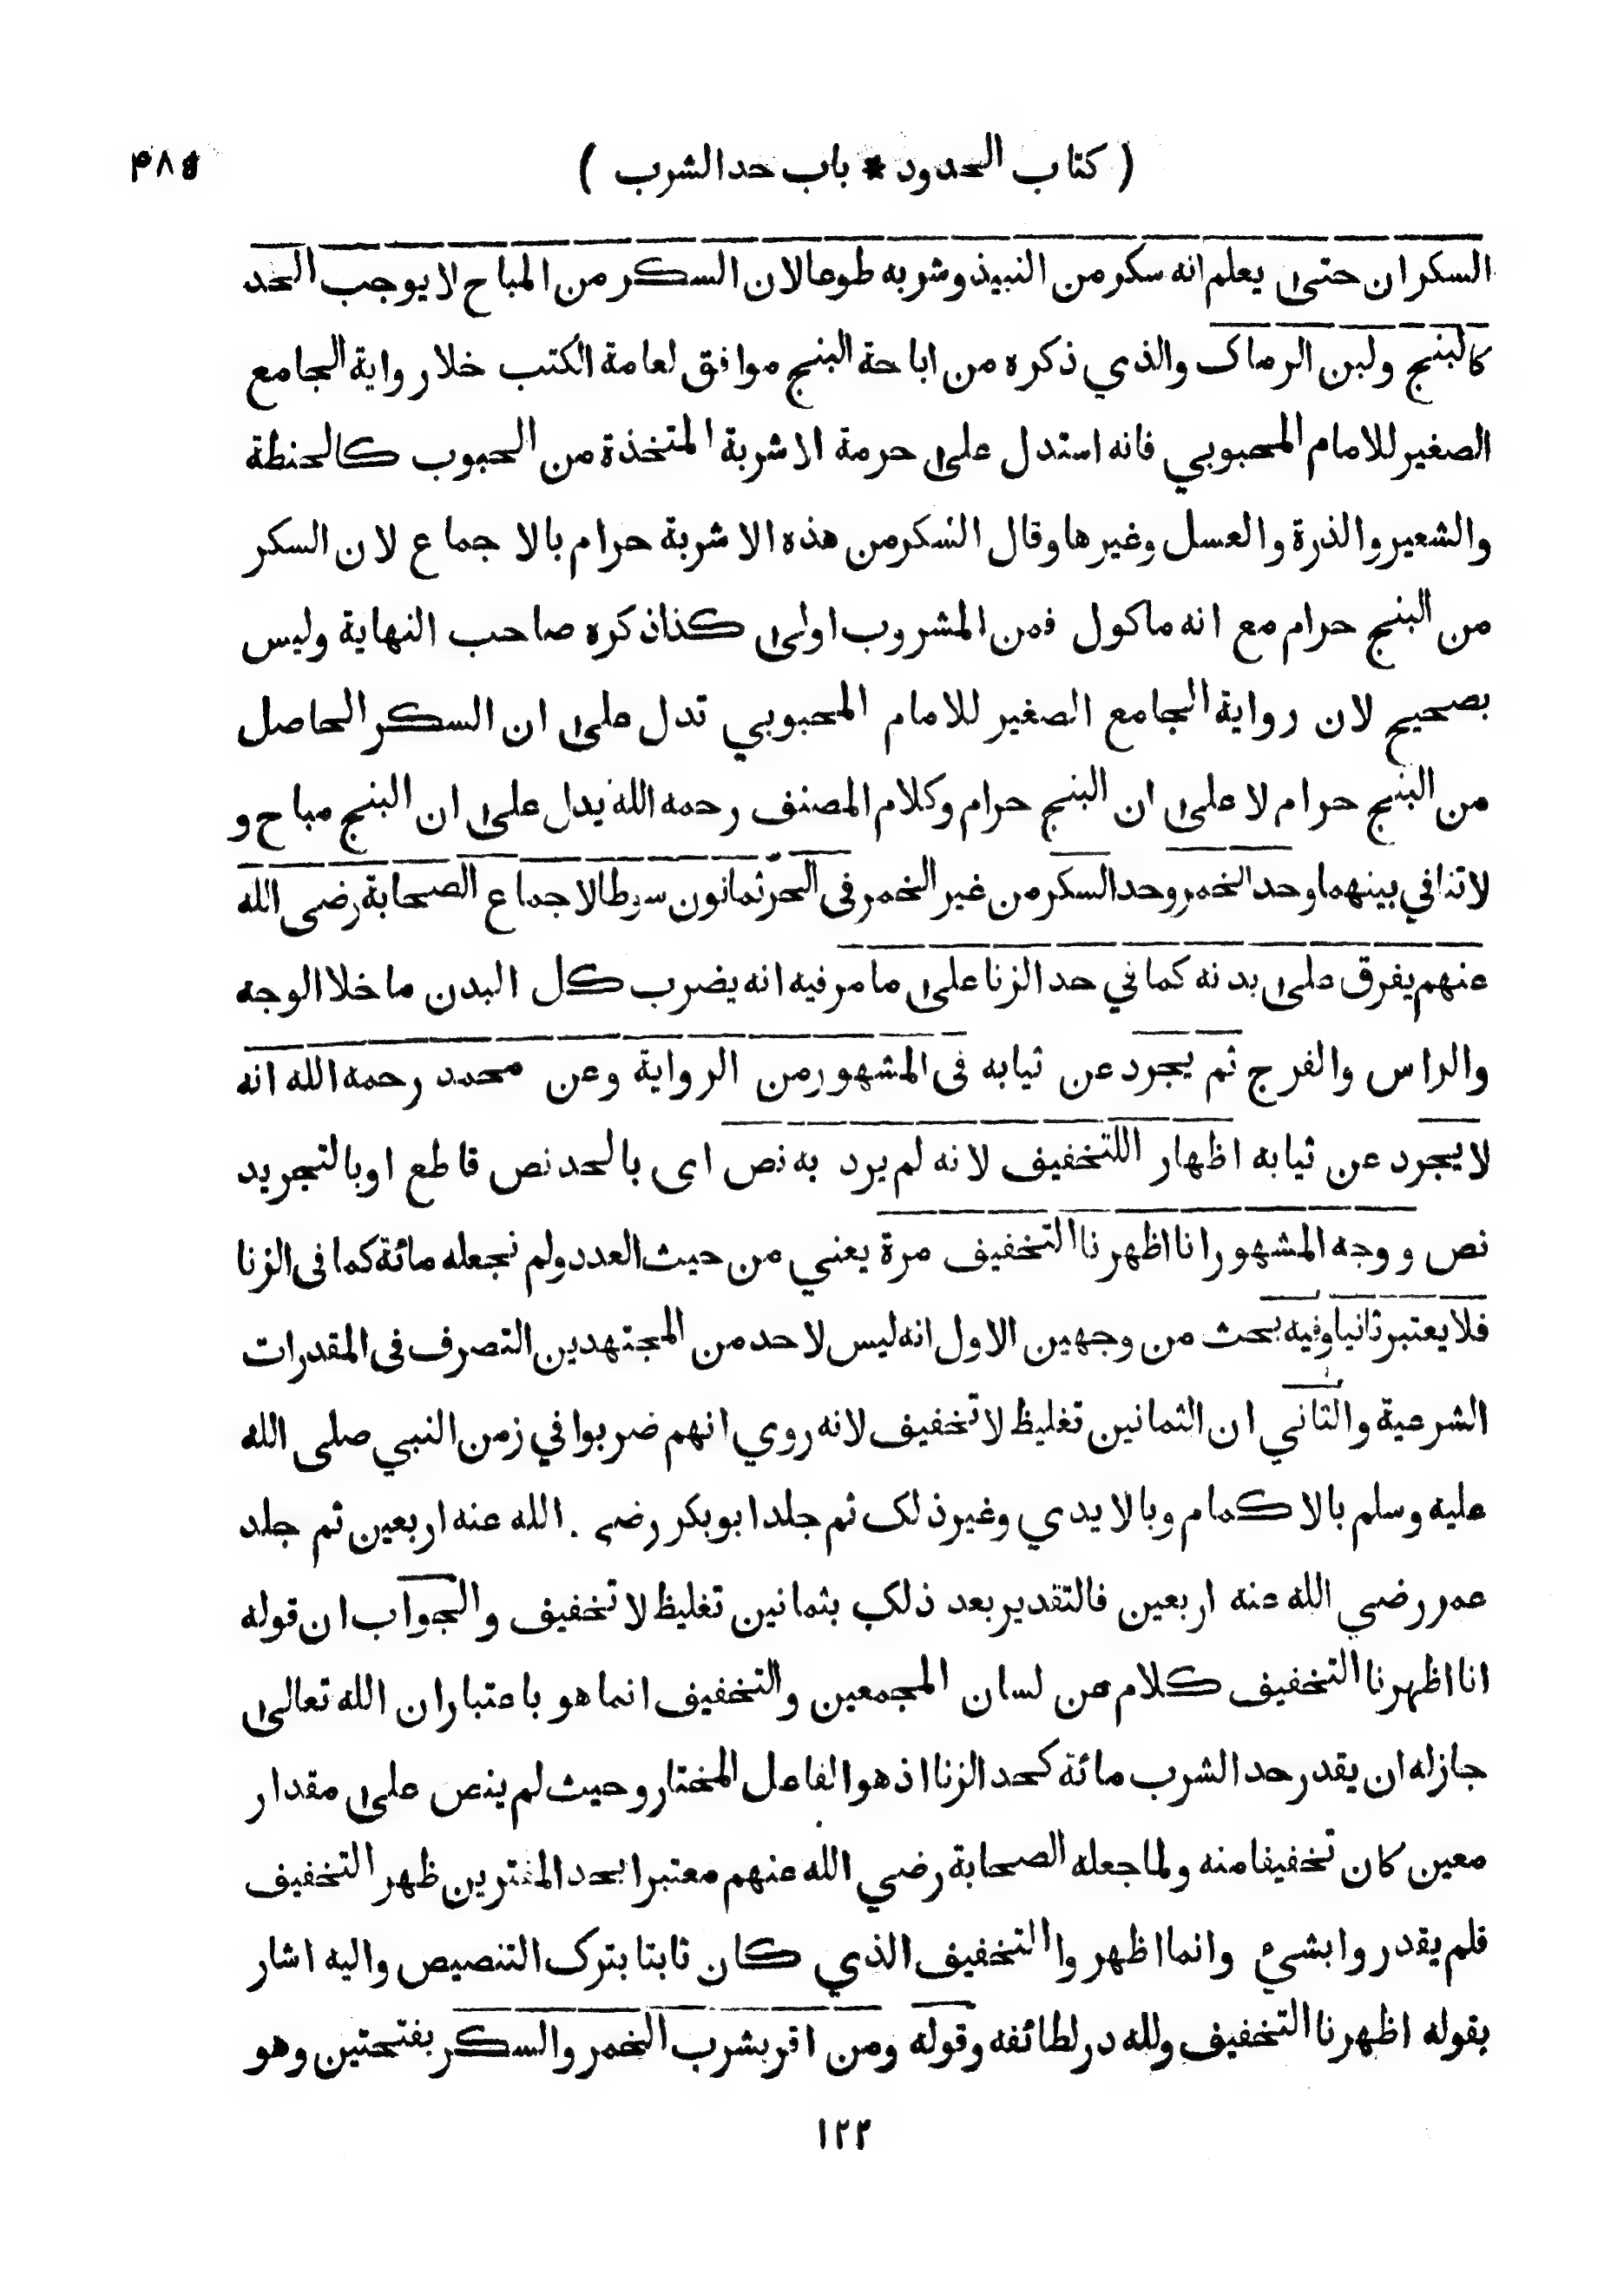 ( كتاب الحدود * باب حد الشرب )
۴۸۵
السكران حتى يعلم انه سكر من النبيذ وشربه طوعا لان السكر من المباح لا يوجب الحد
كالبنج ولبن الرماك والذي ذكره من اباحة البنج موافق لعامة الكتب خلا رواية الجامع
الصغير للامام المحبوبي فانه استدل على حرمة الاشربة المتخذة من الحبوب كالحنطة
والشعير والذرة والعسل وغيرها وقال السكر من هذه الاشربة حرام بالاجماع لان السكر
من البنج حرام مع انه ماكول فمن المشروب اولى كذا ذكره صاحب النهاية وليس
بصحيح لان رواية الجامع الصغير للامام المحبوبي تدل على ان السكر الحاصل
من البنج حرام لا على ان البنج حرام وكلام المصنف رحمه الله يدل على ان البنج مباح و
لا تنافي بينهما وحد الخمر وحد السكر من غير الخمر فى الحر ثمانون سوطا لاجماع الصحابة رضى الله
عنهم يفرق على بدنه كما في حد الزنا على ما مر فيه انه يضرب كل البدن ما خلا الوجه
والراس والفرج ثم يجرد عن ثيابه فى المشهور من الرواية وعن محمد رحمه الله انه
لا يجرد عن ثيابه اظهار اللتخفيف لانه لم يرد به نص اى بالحد نص قاطع او بالتجريد
نص ووجه المشهور انا اظهرنا التخفيف مرة يعني من حيث العدد ولم نجعله مائة كما فى الزنا
فلا يعتبر ثانيا وفيه بحث من وجهين الاول انه ليس لاحد من المجتهدين التصرف فى المقدرات
الشرعية والثاني ان الثمانين تغليظ لا تخفيف لانه روي انهم ضربوا في زمن النبي صلى الله
عليه وسلم بالاكمام وبالايدي وغير ذلك ثم جلد ابوبكر رضي الله عنه اربعين ثم جلد
عمر رضي الله عنه اربعين فالتقدير بعد ذلك بثمانين تغليظ لا تخفيف والجواب ان قوله
انا اظهرنا التخفيف كلام عن لسان المجمعين والتخفيف انما هو باعتبار ان الله تعالى
جاز له ان يقدر حد الشرب مائة كحد الزنا اذ هو الفاعل المختار وحيث لم ينص على مقدار
معين كان تخفيفا منه ولما جعله الصحابة رضي الله عنهم معتبرا بحد المفترين ظهر التخفيف
فلم يقدروا بشيء وانما اظهروا التخفيف الذي كان ثابتا بترك التنصيص واليه اشار
بقوله اظهرنا التخفيف ولله در لطائفه وقوله ومن اقر بشرب الخمر والسكر بفتحتين وهو
۱۲۲